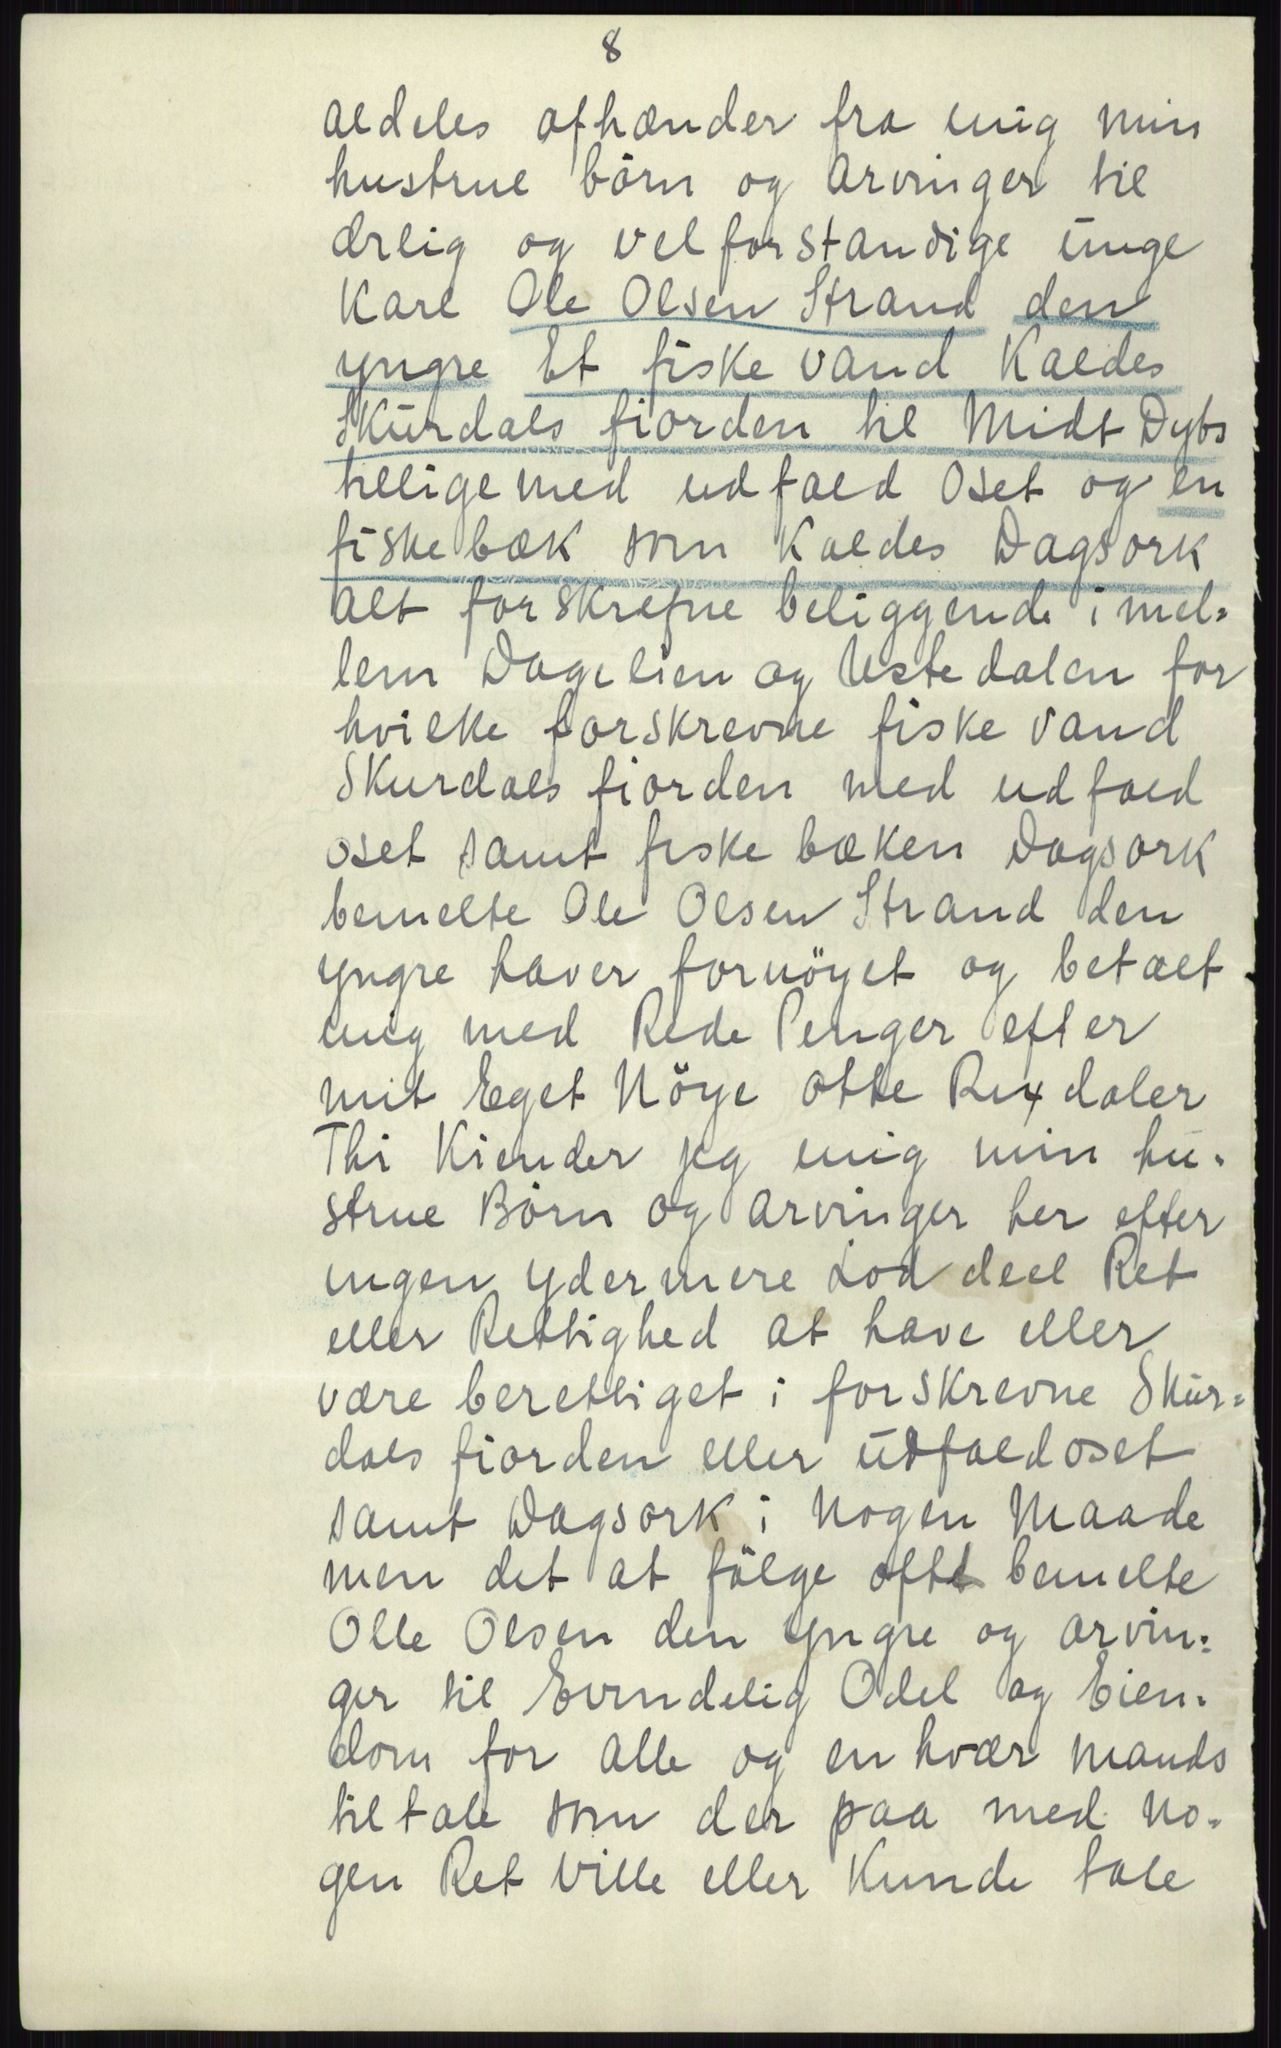 8
aldeles afhænder fra mig min
hustrue börn og arvinger til
ærlig og velforstandige unge
Karl Ole Olsen Strand den
yngre Et fiske vand Kaldes
Skurdals fiorden til Midt Dybs
tillige med udfald Oset og en
fiske bæk som Kaldes Dagsork
alt forskrefne beliggende i mel=
lem Dagelien og Ustedalen for
hvilke forskrevne fiske vand
Skurdals fiorden med udfald
oset samt fiske bæken Dagsork
bemelte Ole Olsen Strand den
yngre haver fornöyet og betalt
mig med Rede Penger efter
mit Eget Nöye otte Rixdaler
Thi Kiender jeg mig min hu=
strue Börn og arvinger her efter
ingen ydermere Lod deel Ret
eller Rettighed at have eller
være berettiget i forskrevne Skur=
dals fiorden eller udfaldoset
samt Dagsork i Nogen Maade
men det at fölge oftt bemelte
Olle Olsen den yngre og arvin=
ger til Evindelig Odel og Eien=
dom for alle og en hvær mands
tiltale som der paa med No=
gen Ret Ville eller Kunde tale